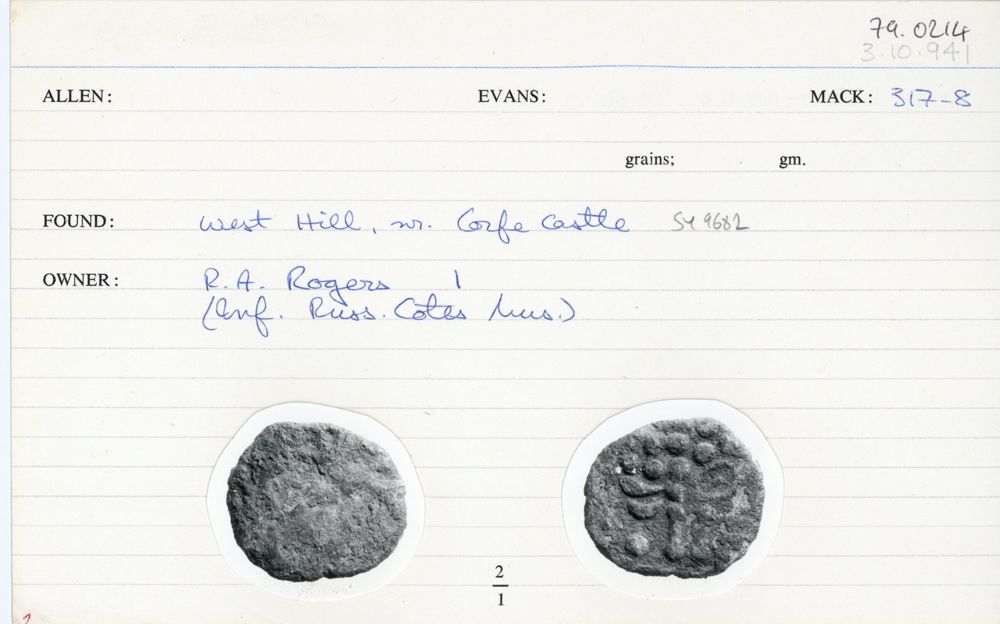 79.0214
3.10.941
ALLEN: EVANS: MACK: 317-8
grains; gm.
FOUND: West Hill, nr. Corfe Castle SY 9682
OWNER: R.A. Rogers 1
(Inf. Russ. Cotes Mus.)
2
1